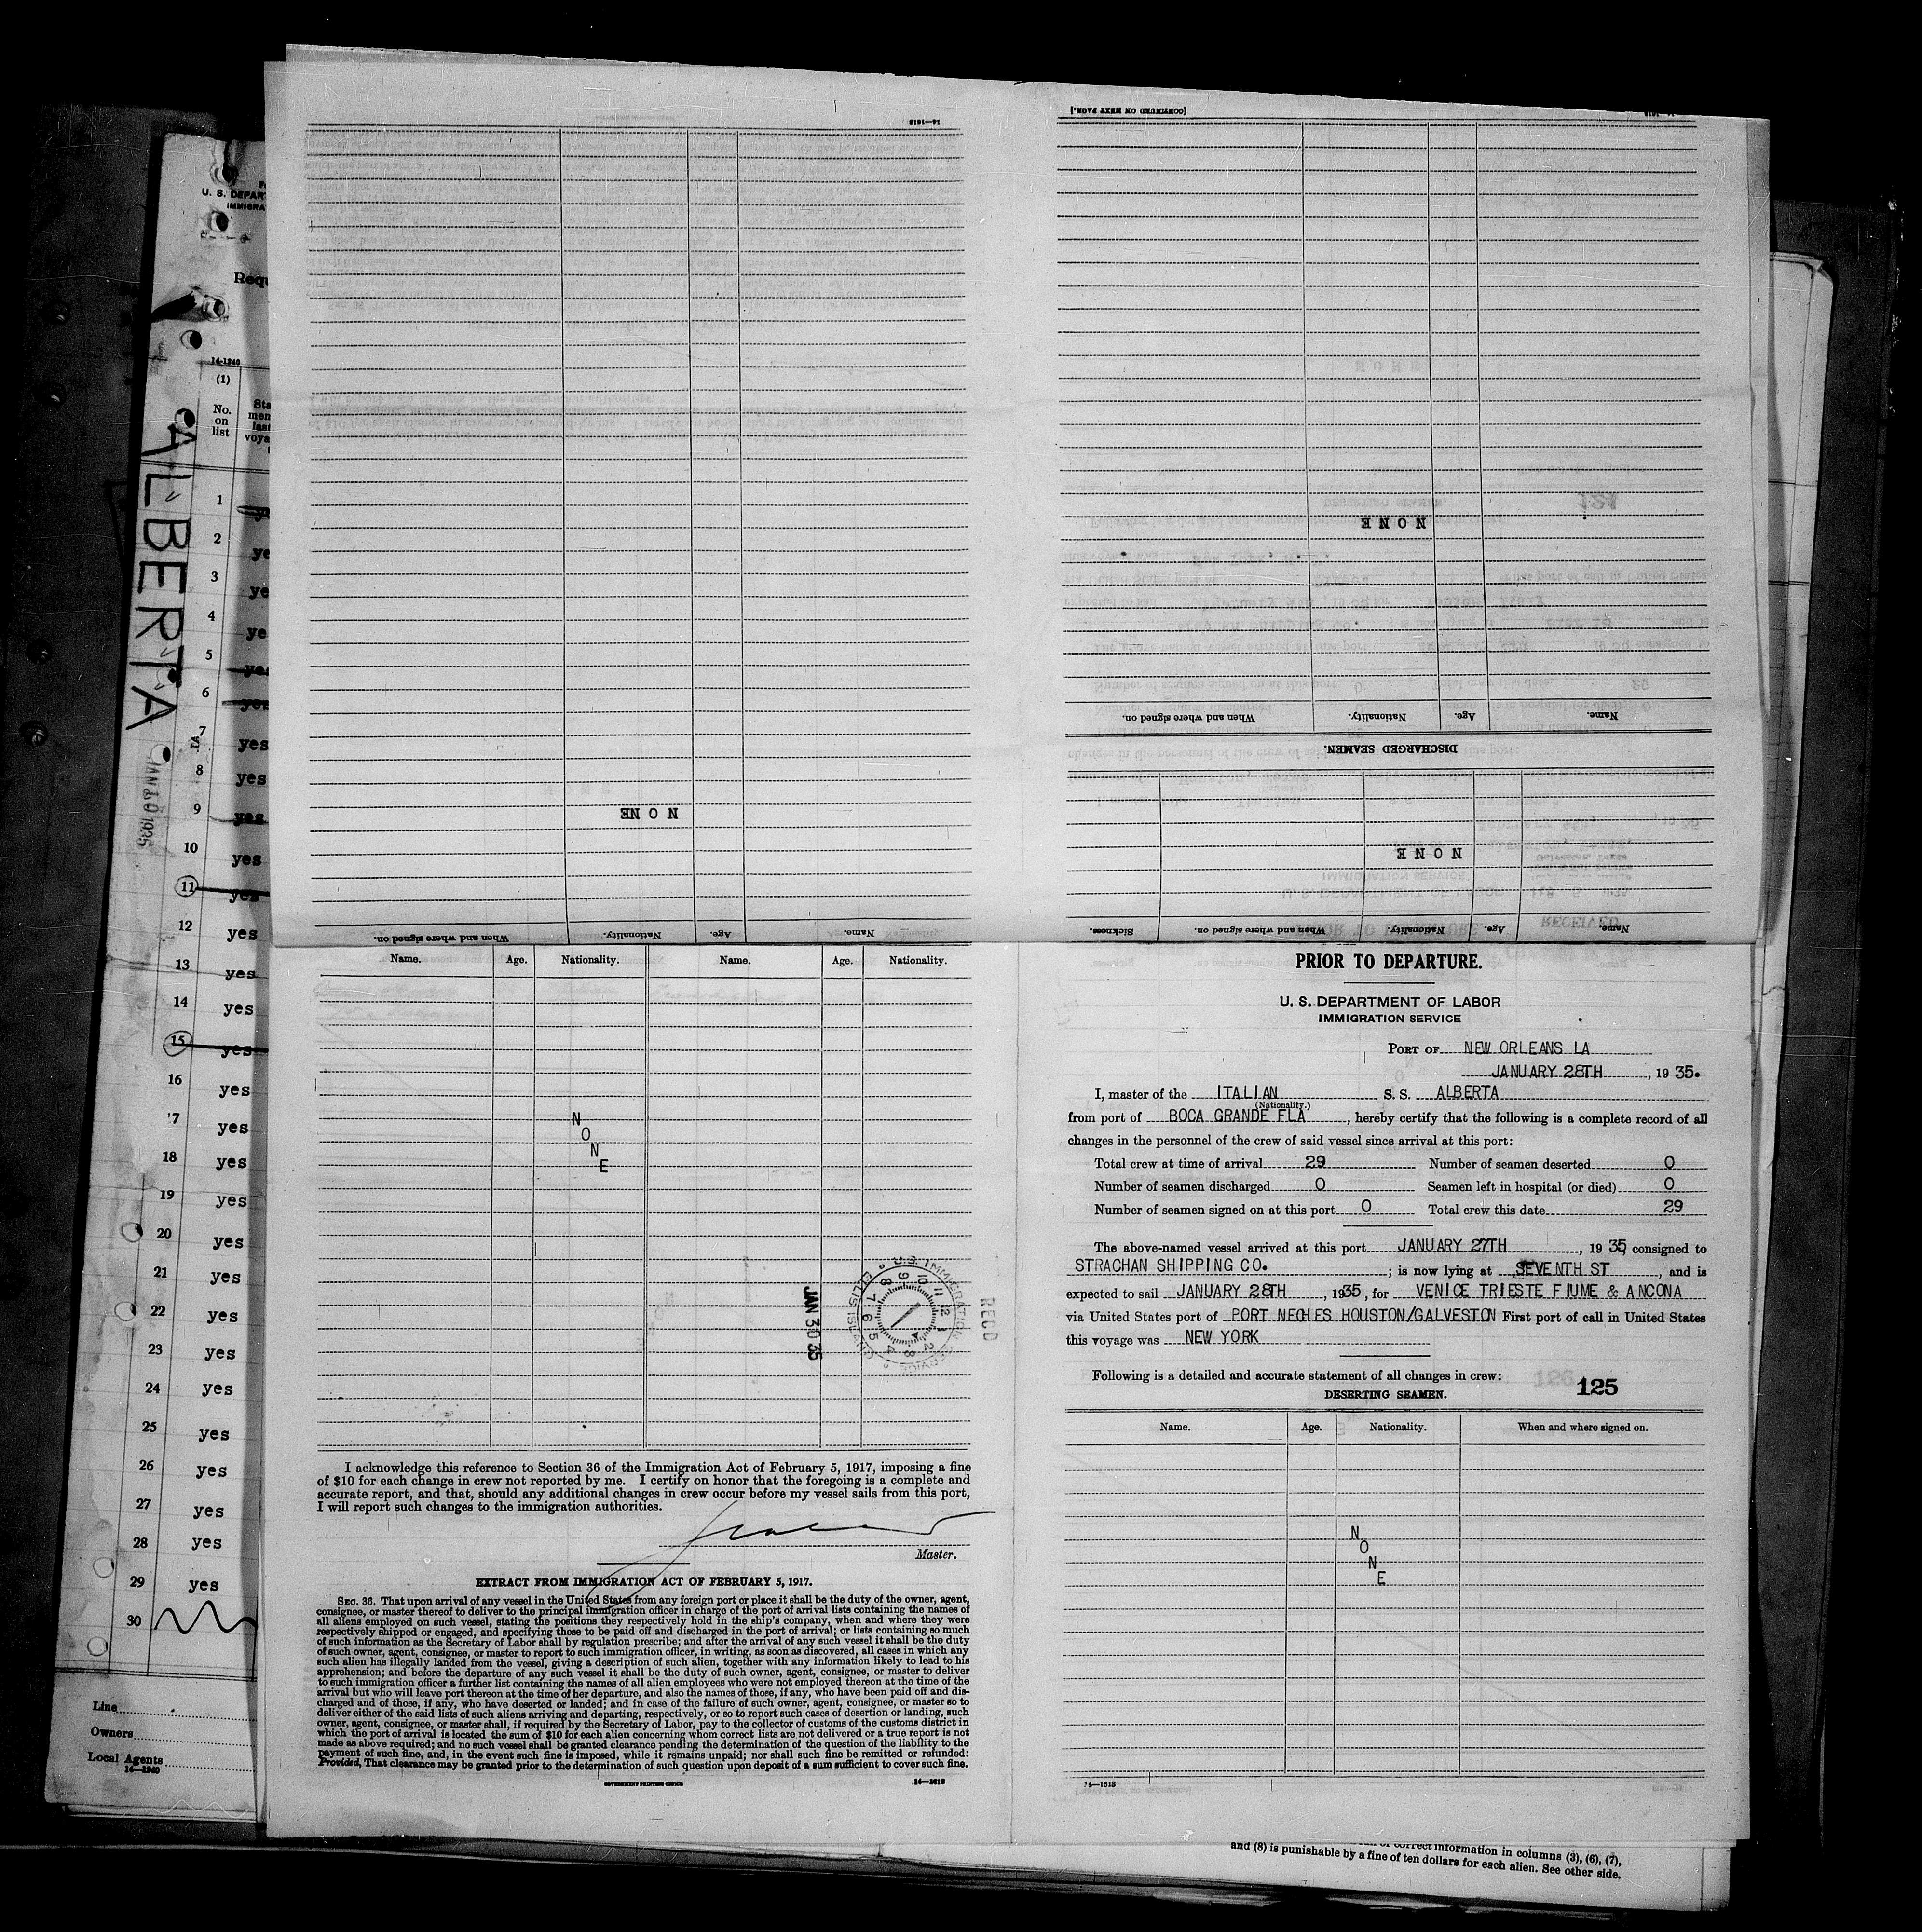 U. S. DEPAR
IMMIGRA
Requ
14-1240
(1)
No.
on
list
Sta
men
last
voya
ALBERTA
JAN 30 1935
1
2 ye
3 ye
4 ye
5 yes
6 yes
7 yes
8 yes
9 yes
10 yes
11 yes
12 yes
13 yes
14 yes
15 yes
16 yes
17 yes
18 yes
19 yes
20 yes
21 yes
22 yes
23 yes
24 yes
25 yes
26 yes
27 yes
28 yes
29 yes
30
Line
Owners
Local Agents
14—1240
Name. Age. Nationality. When and where signed on.
NONE
14—1613
Name. Age. Nationality. When and where signed on. Sickness.
NONE
DISCHARGED SEAMEN.
Name. Age. Nationality. When and where signed on.
NONE
[CONTINUED ON NEXT PAGE.]
Name. Age. Nationality. Name. Age. Nationality.
NONE
JAN 30 35
U.S. IMMIGRATION SERVICE ELLIS ISLAND
RECD
I acknowledge this reference to Section 36 of the Immigration Act of February 5, 1917, imposing a fine
of $10 for each change in crew not reported by me. I certify on honor that the foregoing is a complete and
accurate report, and that, should any additional changes in crew occur before my vessel sails from this port,
I will report such changes to the immigration authorities.
Master.
EXTRACT FROM IMMIGRATION ACT OF FEBRUARY 5, 1917.
SEC. 36. That upon arrival of any vessel in the United States from any foreign port or place it shall be the duty of the owner, agent,
consignee, or master thereof to deliver to the principal immigration officer in charge of the port of arrival lists containing the names of
all aliens employed on such vessel, stating the positions they respectively hold in the ship's company, when and where they were
respectively shipped or engaged, and specifying those to be paid off and discharged in the port of arrival; or lists containing so much
of such information as the Secretary of Labor shall by regulation prescribe; and after the arrival of any such vessel it shall be the duty
of such owner, agent, consignee, or master to report to such immigration officer, in writing, as soon as discovered, all cases in which any
such alien has illegally landed from the vessel, giving a description of such alien, together with any information likely to lead to his
apprehension; and before the departure of any such vessel it shall be the duty of such owner, agent, consignee, or master to deliver
to such immigration officer a further list containing the names of all alien employees who were not employed thereon at the time of the
arrival but who will leave port thereon at the time of her departure, and also the names of those, if any, who have been paid off and dis-
charged and of those, if any, who have deserted or landed; and in case of the failure of such owner, agent, consignee, or master so to
deliver either of the said lists of such aliens arriving and departing, respectively, or so to report such cases of desertion or landing, such
owner, agent, consignee, or master shall, if required by the Secretary of Labor, pay to the collector of customs of the customs district in
which the port of arrival is located the sum of $10 for each alien concerning whom correct lists are not delivered or a true report is not
made as above required; and no such vessel shall be granted clearance pending the determination of the question of the liability to the
payment of such fine, and, in the event such fine is imposed, while it remains unpaid; nor shall such fine be remitted or refunded:
Provided, That clearance may be granted prior to the determination of such question upon deposit of a sum sufficient to cover such fine.
GOVERNMENT PRINTING OFFICE 14—1613
PRIOR TO DEPARTURE.
U. S. DEPARTMENT OF LABOR
IMMIGRATION SERVICE
PORT OF NEW ORLEANS LA
JANUARY 28TH, 1935.
I, master of the ITALIAN S. S. ALBERTA
(Nationality.)
from port of BOCA GRANDE FLA, hereby certify that the following is a complete record of all
changes in the personnel of the crew of said vessel since arrival at this port:
Total crew at time of arrival 29 Number of seamen deserted 0
Number of seamen discharged 0 Seamen left in hospital (or died) 0
Number of seamen signed on at this port 0 Total crew this date 29
The above-named vessel arrived at this port JANUARY 27TH, 1935, consigned to
STRACHAN SHIPPING CO.; is now lying at SEVENTH ST, and is
expected to sail JANUARY 28TH, 1935, for VENICE TRIESTE FIUME & ANCONA
via United States port of PORT NECHES HOUSTON/GALVESTON First port of call in United States
this voyage was NEW YORK
Following is a detailed and accurate statement of all changes in crew: 125
DESERTING SEAMEN.
Name. Age. Nationality. When and where signed on.
NONE
14—1613
correct information in columns (3), (6), (7),
and (8) is punishable by a fine of ten dollars for each alien. See other side.